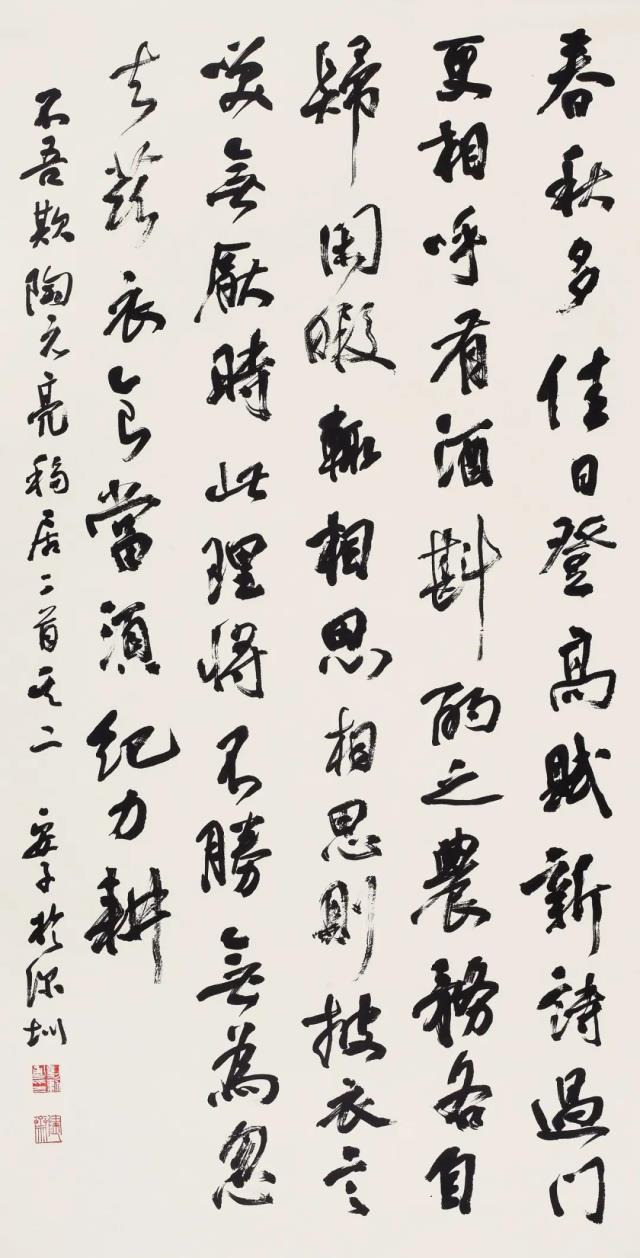 春秋多佳日登高賦新詩過門
更相呼有酒斟酌之農務各自
歸閑暇輒相思相思則披衣言
笑無厭時此理將不勝無為忽
去茲衣食當須紀力耕
不吾欺陶元亮移居二首其二 安子於深圳